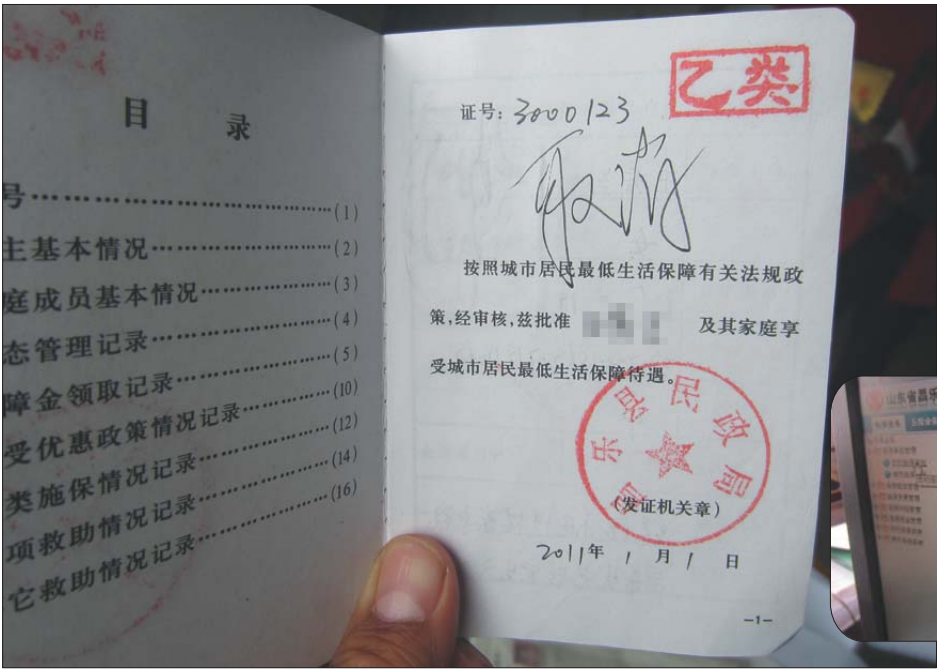 目 录
号……(1)
主基本情况……(2)
庭成员基本情况……(3)
态管理记录……(4)
障金领取记录……(5)
受优惠政策情况记录……(10)
类施保情况记录……(12)
项救助情况记录……(14)
它救助情况记录……(16)
乙类
证号:3000123
按照城市居民最低生活保障有关法规政
策,经审核,兹批准 及其家庭享
受城市居民最低生活保障待遇。
昌乐县民政局
(发证机关章)
2011年 1 月 1 日
-1-
山东省昌乐